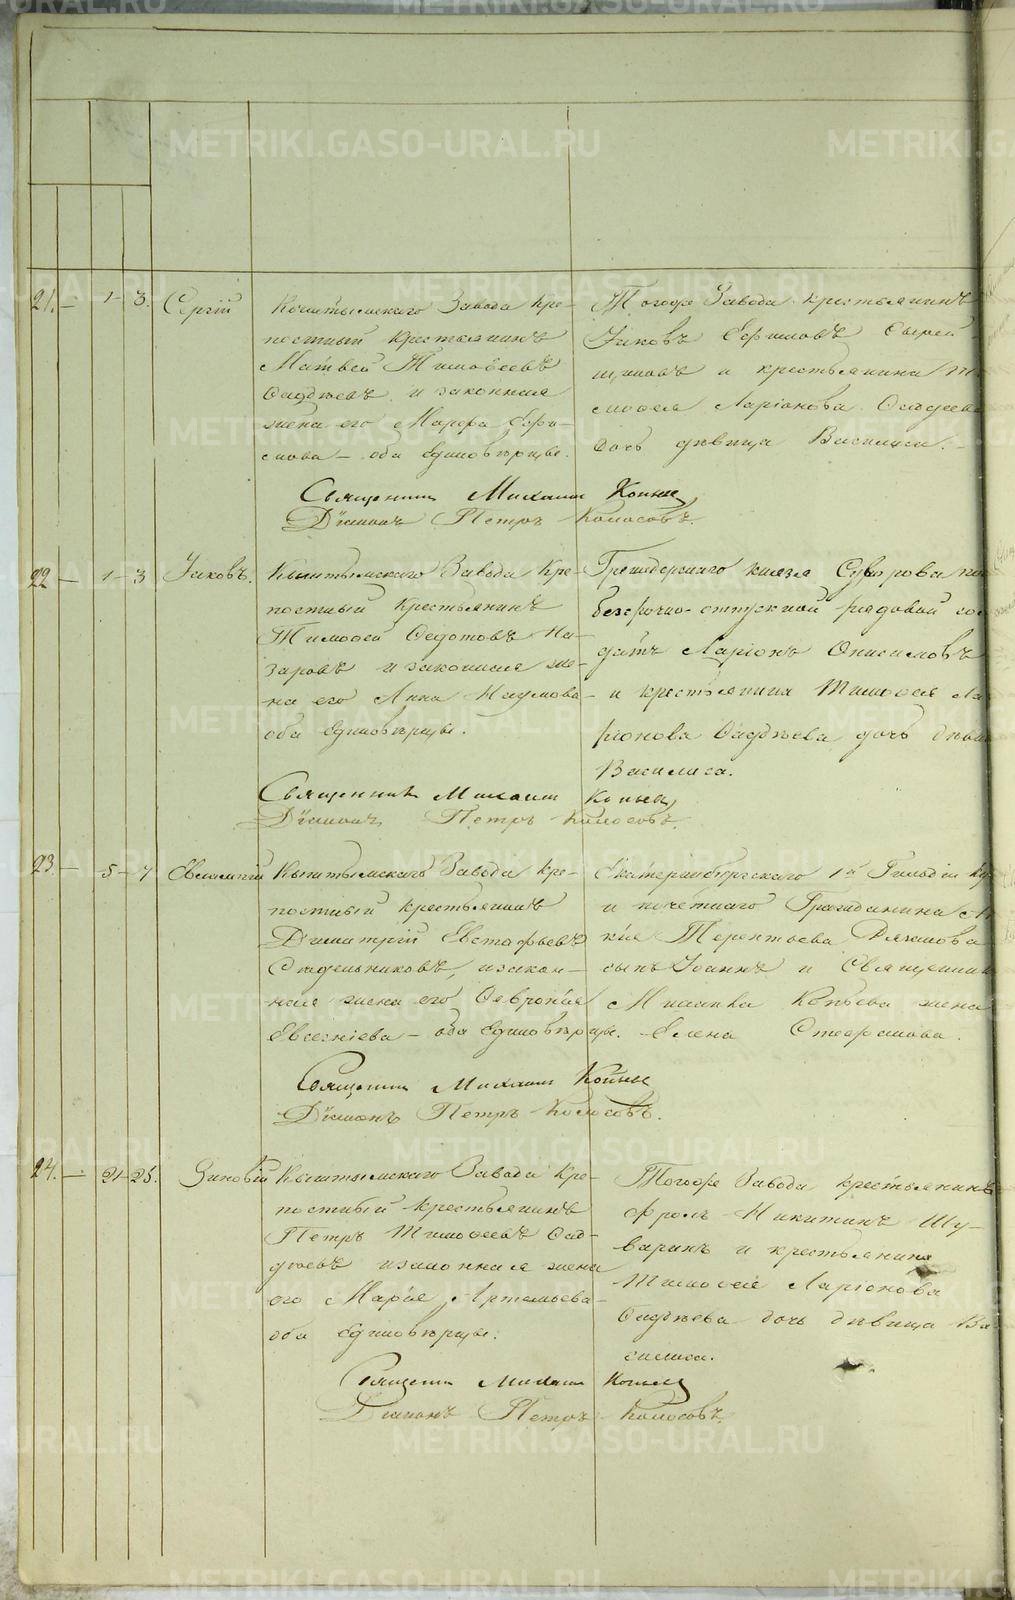 21. — 1 — 3. Сергій Кыштымскаго Завода кре-
постный крестьянинъ
Матвей Тимоѳеевъ
Ѳадѣевъ и законная
жена его Марѳа Ефи-
мова — оба Единовѣрцы.
Тогоже Завода крестьянинъ
Іаковъ Ефимовъ Сырей-
щиковъ и крестьянина Ти
моѳея Ларіонова Ѳадѣева
дочь дѣвица Васиlиса.
Священникъ Михаилъ
Діаконъ Петръ Колосовъ.
22 — 1 — 3 Іаковъ. Кыштымскаго Завода Кре-
постный Крестьянинъ
Тимоѳей Ѳедотовъ На-
заровъ и законная же-
на его Анна Наумова —
оба Единовѣрцы.
Гренадерскаго князя Суворова по
безсрочно-отпускной рядовой сол
датъ Ларіонъ Онисимовъ
и крестьянина Тимоѳея Ла
ріонова Ѳадѣева дочь дѣви
Василиса.
Священникъ Михаилъ
Діаконъ Петръ Колосовъ.
23. — 5 — 7 Евлампій Кыштымскаго Завода кре-
постный крестьянинъ
Димитрій Евстафьевъ
Стадельниковъ, и закон-
ная жена его Ѳевронія
Евсегніева — оба Единовѣрцы.
Екатеринбургскаго 1й Гильдіи Ку
и почетнаго Гражданина
кія Терентьева Рязанова
сынъ Іоаннъ и Священник
Михаила жена
Елена Стефанова.
Священникъ Михаилъ
Діаконъ Петръ Колосовъ.
24. — 21 — 25. Зиновій Кыштымскаго Завода Кре-
постный крестьянинъ
Петръ Тимоѳеевъ Ѳад-
дѣевъ и законная жена
его Марія Артемьева —
оба Единовѣрцы.
Тогоже Завода крестьянинъ
Фролъ Никитинъ Шу-
варинъ и крестьянина
Тимоѳея Ларіонова
Ѳадѣева дочь дѣвица Ва
силиса.
Священникъ Михаилъ
Діаконъ Петръ Колосовъ.
METRIKI.GASO-URAL.RU